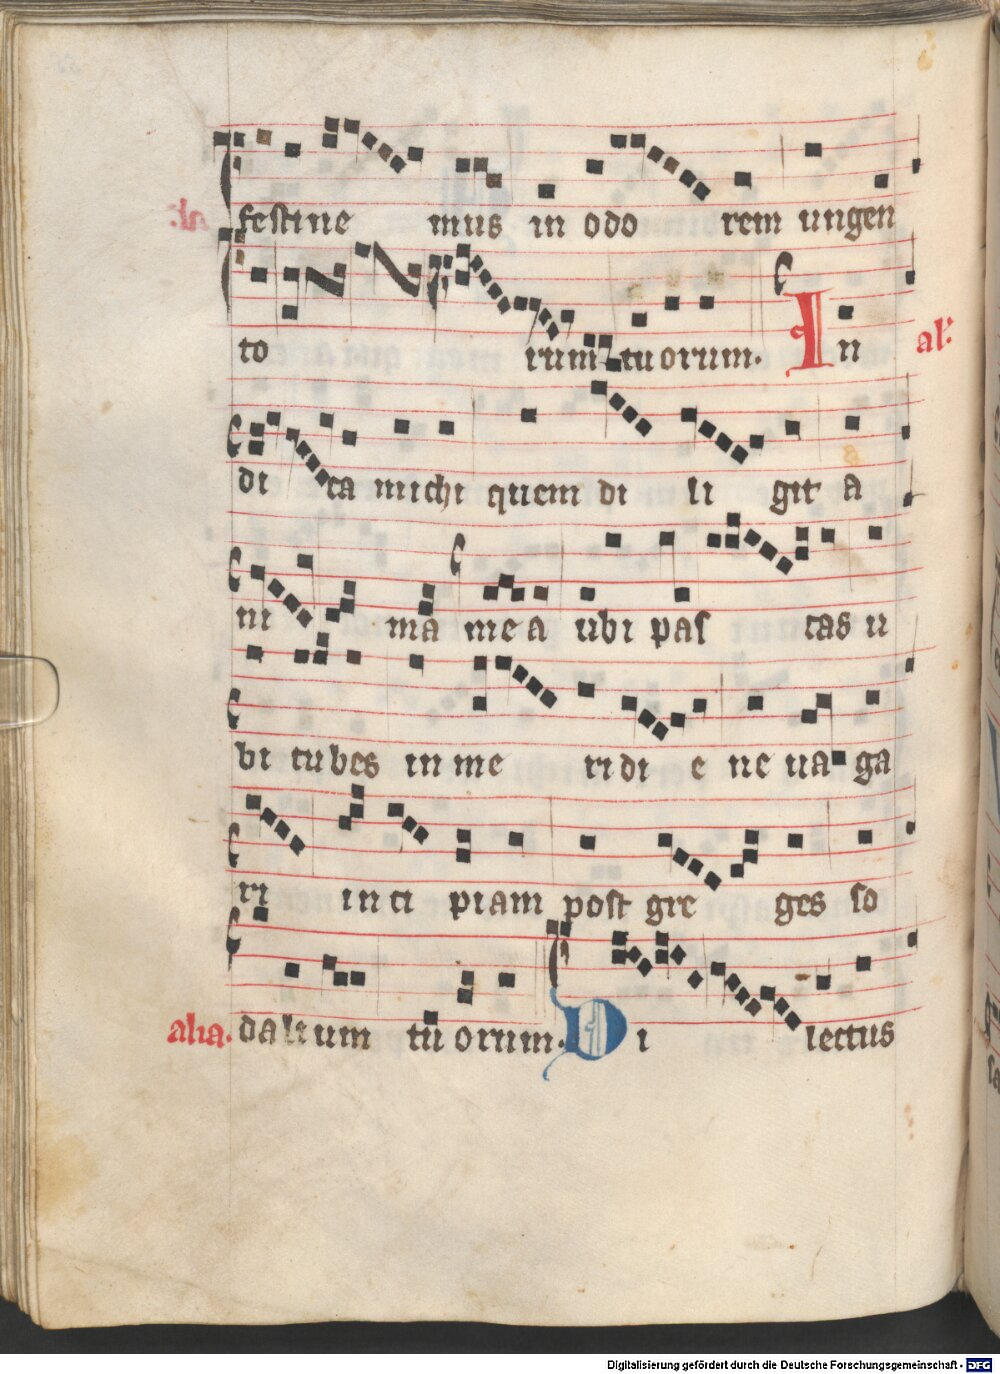 festine mus in odo rem ungen
to rum tuorum. In al':
di ca michi quem di li git a
ni ma mea ubi pas cas u
bi cubes in me ridi e ne ua ga
ri inci piam post gre ges so
alia. dalium tu orum. Di lectus
Digitalisierung gefördert durch die Deutsche Forschungsgemeinschaft - DFG